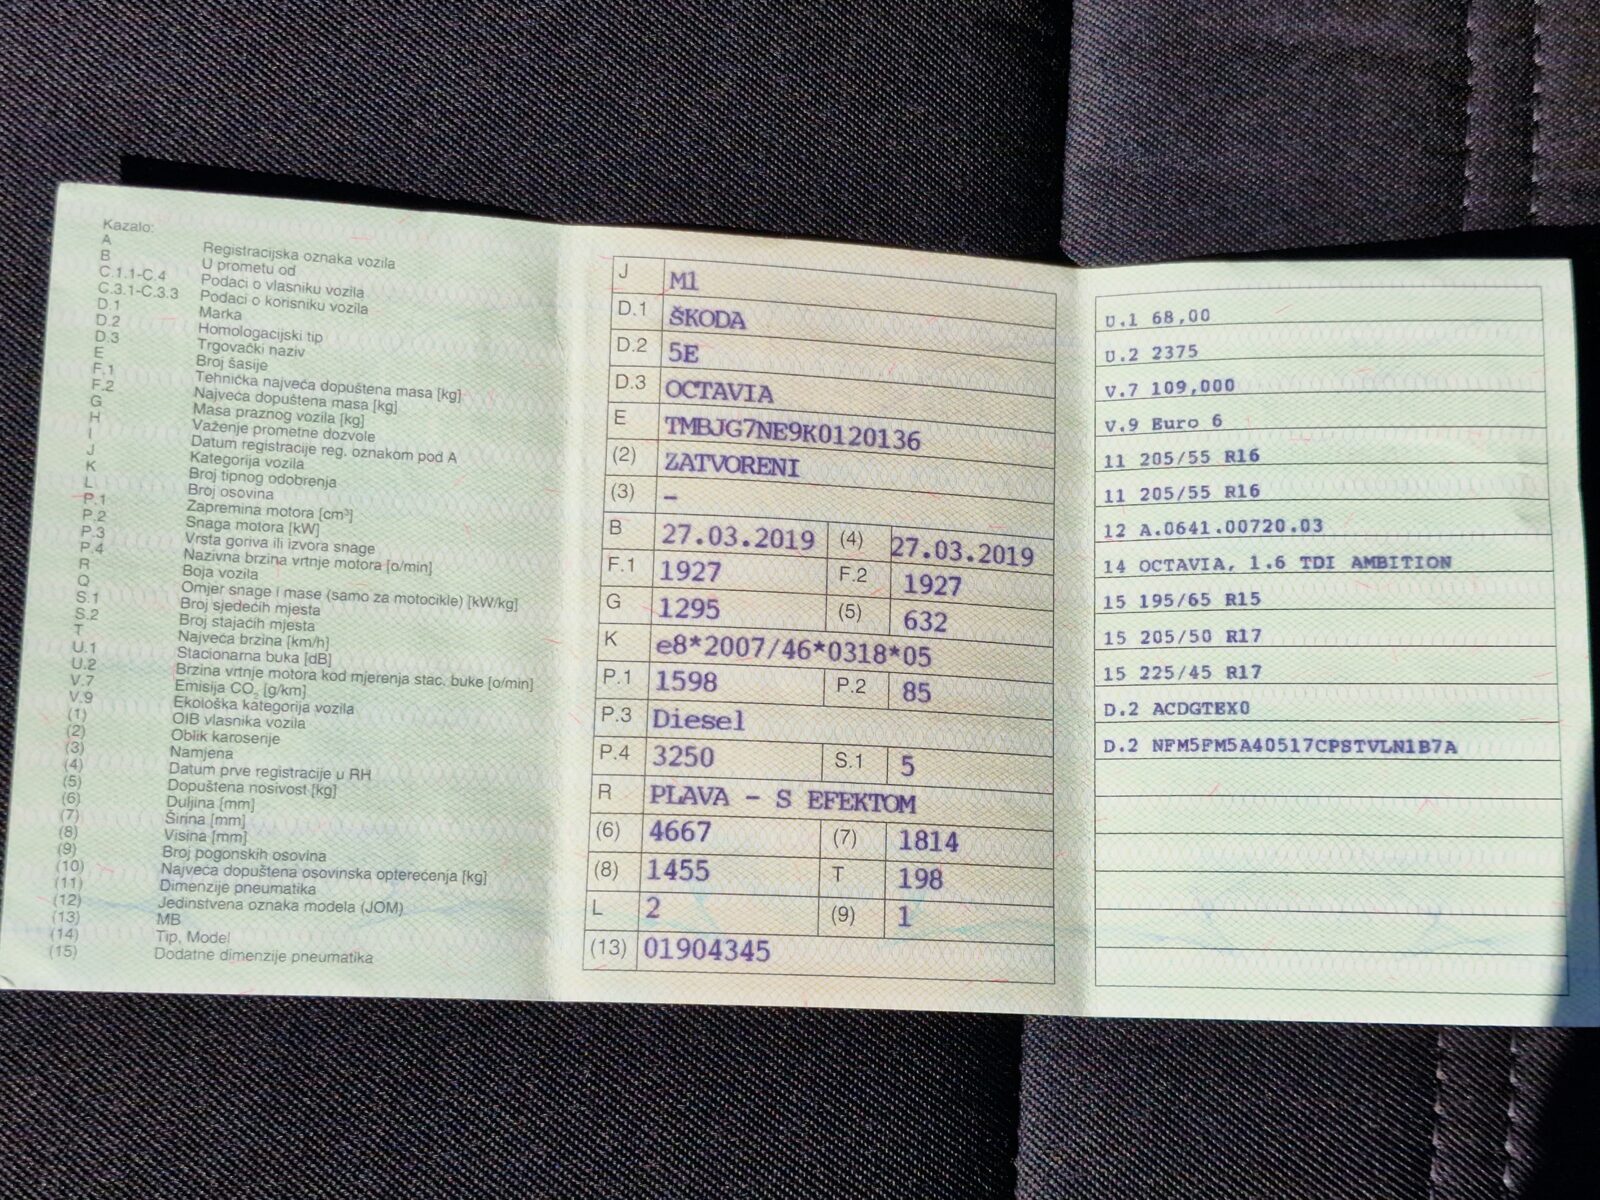 Kazalo:
A Registracijska oznaka vozila
B U prometu od
C.1.1-C.4 Podaci o vlasniku vozila
C.3.1-C.3.3 Podaci o korisniku vozila
D.1 Marka
D.2 Homologacijski tip
D.3 Trgovački naziv
E Broj šasije
F.1 Tehnička najveća dopuštena masa [kg]
F.2 Najveća dopuštena masa [kg]
G Masa praznog vozila [kg]
H Važenje prometne dozvole
I Datum registracije reg. oznakom pod A
J Kategorija vozila
K Broj tipnog odobrenja
L Broj osovina
P.1 Zapremina motora [cm³]
P.2 Snaga motora [kW]
P.3 Vrsta goriva ili izvora snage
P.4 Nazivna brzina vrtnje motora [o/min]
R Boja vozila
Q Omjer snage i mase (samo za motocikle) [kW/kg]
S.1 Broj sjedećih mjesta
S.2 Broj stajaćih mjesta
T Najveća brzina [km/h]
U.1 Stacionarna buka [dB]
U.2 Brzina vrtnje motora kod mjerenja stac. buke [o/min]
V.7 Emisija CO₂ [g/km]
V.9 Ekološka kategorija vozila
(1) OIB vlasnika vozila
(2) Oblik karoserije
(3) Namjena
(4) Datum prve registracije u RH
(5) Dopuštena nosivost [kg]
(6) Duljina [mm]
(7) Širina [mm]
(8) Visina [mm]
(9) Broj pogonskih osovina
(10) Najveća dopuštena osovinska opterećenja [kg]
(11) Dimenzije pneumatika
(12) Jedinstvena oznaka modela (JOM)
(13) MB
(14) Tip, Model
(15) Dodatne dimenzije pneumatika
J M1
D.1 ŠKODA
D.2 5E
D.3 OCTAVIA
E TMBJG7NE9K0120136
(2) ZATVORENI
(3) –
B 27.03.2019 (4) 27.03.2019
F.1 1927 F.2 1927
G 1295 (5) 632
K e8*2007/46*0318*05
P.1 1598 P.2 85
P.3 Diesel
P.4 3250 S.1 5
R PLAVA - S EFEKTOM
(6) 4667 (7) 1814
(8) 1455 T 198
L 2 (9) 1
(13) 01904345
U.1 68,00
U.2 2375
V.7 109,000
V.9 Euro 6
11 205/55 R16
11 205/55 R16
12 A.0641.00720.03
14 OCTAVIA, 1.6 TDI AMBITION
15 195/65 R15
15 205/50 R17
15 225/45 R17
D.2 ACDGTEX0
D.2 NFM5FM5A40517CPSTVLN1B7A